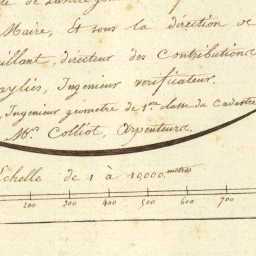 Maire, et sous la direction de
directeur des Contributions
Ingenieur verificateur.
Ingenieur geometre de 1ere classe du Cadastre
Mr. Colliot, Arpenteur.
Echelle de 1 à 10,000. metres
200 300 400 500 600 700